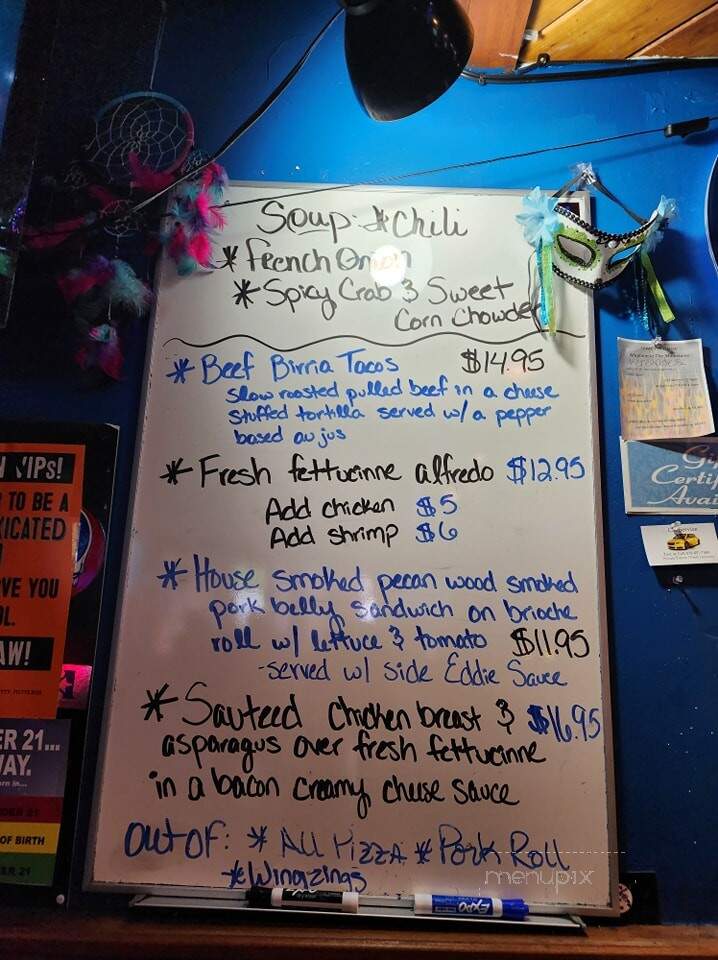 Soup: * Chili
* Feench Onion
* Spicy Crab & Sweet
Corn Chowder
* Beef Birria Tacos $14.95
slow roasted pulled beef in a cheese
stuffed tortilla served w/ a pepper
based au jus
* Fresh fettucinne alfredo $12.95
Add chicken $5
Add shrimp $6
* House smoked pecan wood smoked
pork belly sandwich on brioche
roll w/ lettuce & tomato $11.95
-served w/ side Eddie Sauce
* Sauteed chicken breast & $16.95
asparagus over fresh fettucinne
in a bacon creamy cheese sauce
Out of: * All Pizza * Pork Roll
* Wingzings
menupix
EXPO
VIPs!
TO BE A
XICATED
VE YOU
OL.
AW!
ER 21...
WAY.
OF BIRTH
ER 21
Gi
Certif
Avai